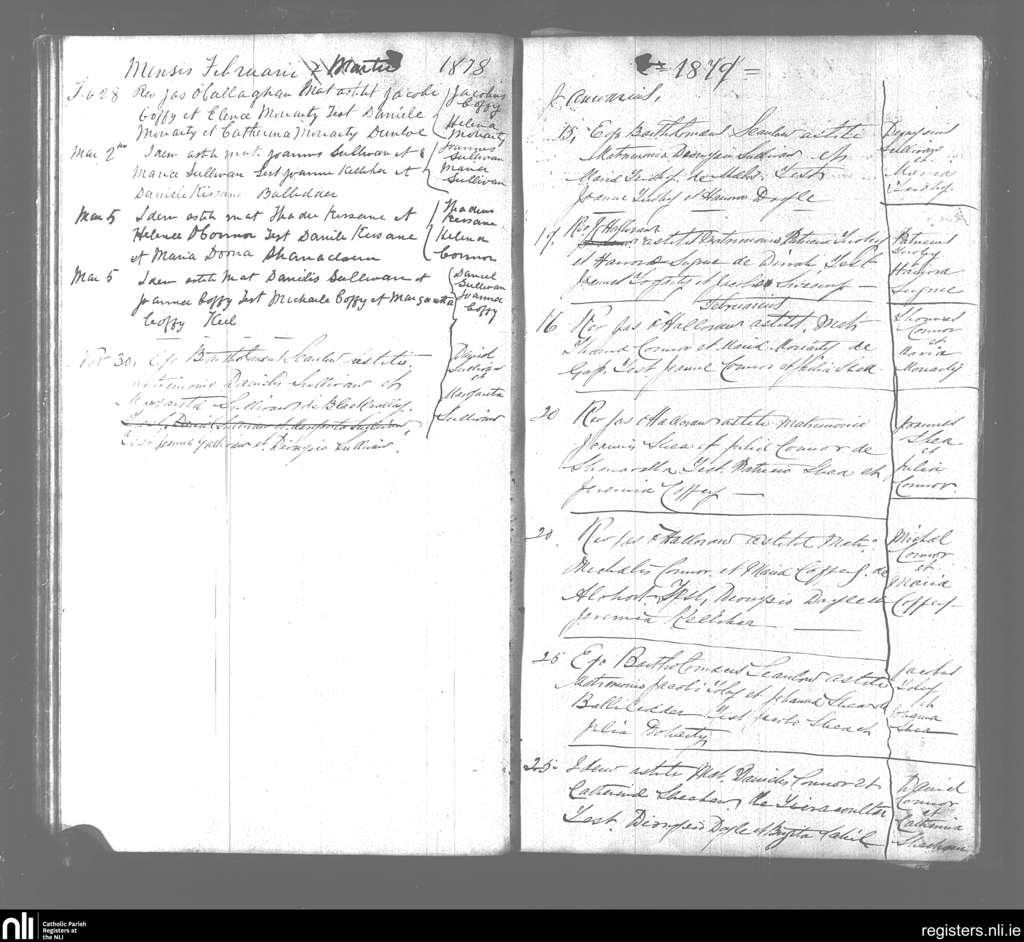 Mensis Februarii & Martii 1878
Feb 28 Rev Jas O'Callaghan Mat astitit Jacobi
Coffy et Elence Moriarty Test Daniele
Moriarty et Catherina Moriarty Dunloe
Jacobus
Coffy
Helena
Moriarty
Mar 2nd Idem astit mat. Joannis Sullivan et
Maria Sullivan Test Joanne Kelliher et
Daniele Kissane Balledder
Joannes
Sullivan
Maria
Sullivan
Mar 5 Idem astit mat Thadeu Kissane et
Helence O'Connor Test Daniele Kissane
et Maria Doona Shanacloun
Thadeus
Kissane
Helena
Connor
Mar 5 Idem astit Mat Danielis Sullivan et
Joannce Coffy Test Michaele Coffy et Margarita
Coffy Keel
Daniel
Sullivan
Joanna
Coffy
Nov 30, Ego Bartholomeus Scanlon astiti
Matrimonio Danielis Sullivan et
Margarita Sullivan de Blackvalley.
Test Joanne Sullivan et Dionysio Sullivan.
Sullivan
et
Margarita
Sullivan
= 1879 =
Januarius,
15, Ego Bartholomeus Scanlon astiti
Matrimonio Dionysii Sullivan et
Maria de Test
Joanne et Hanora Doyle
Dionysius
Sullivan
et
Maria
17. Rev O'Halloran
astitit Matrimonio Patricii
et Hanora de Test
Patricius
et
Hanora
Februarius
16 Rev Jas O'Halloran astitit Mat
Thomae Connor et Maria Moriarty de
Gap. Test Joanne Connor et Julia Shea
Thomas
Connor
et
Maria
Moriarty
20 Rev Jas O'Halloran astitit Matrimonio
Joannis Shea et Julia Connor de
Test. Patricio Shea et
Jeremia Coffey —
Joannes
Shea
et
Julia
Connor.
20. Rev Jas O'Halloran astitit Mat.
Michaelis Connor et Maria Coffey de
Alohort. Test, Dionysio Doyle et
Jeremia Kelleher —
Michal
Connor
et
Maria
Coffey
25 Ego Bartholomaeus Scanlon astiti
Matrimonio Jacobi Foley et Johanna Shea de
Balliledder Test Jacobo Shea et
Julia Doherty
Jacobus
Foley
et
Johanna
Shea
25. Idem astiti Mat. Danielis Connor et
Catherina Sheehan de
Test. Dionysio Doyle et Brigita Cahill
Daniel
Connor
et
Catherina
Sheehan
nli
Catholic Parish
Registers at
the NLI
registers.nli.ie